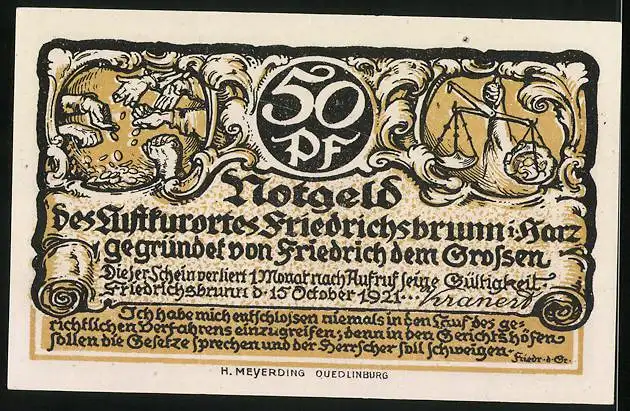 50
PF
Notgeld
des Luftkurortes Friedrichsbrunn i. Harz
gegründet von Friedrich dem Grossen
Dieser Schein verliert 1 Monat nach Aufruf seine Gültigkeit
Friedrichsbrunn d. 15 October 1921... Kranert
Ich habe mich entschlossen niemals in den Lauf des ge-
richtlichen Verfahrens einzugreifen; denn in den Gerichtshöfen
sollen die Gesetze sprechen und der Herrscher soll schweigen
Friedr. d. Gr.
H. MEYERDING QUEDLINBURG